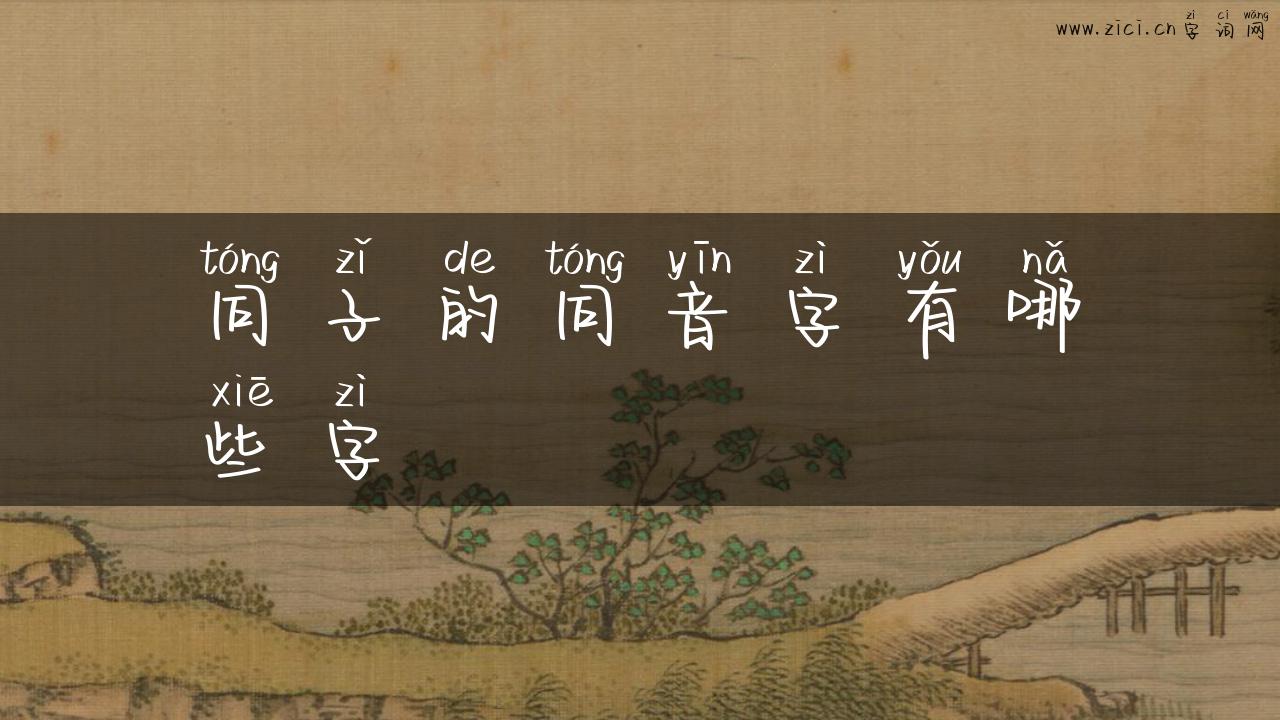 zì cí wǎng
www.zici.cn 字词网
tóng zǐ de tóng yīn zì yǒu nǎ
同子的同音字有哪
xiē zì
些字